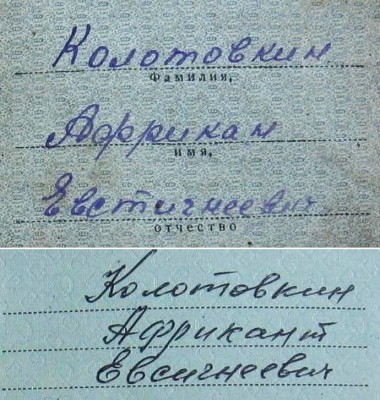 Колотовкин
Фамилия,
Африкан
имя,
Евстигнеевич
отчество
Колотовкин
Африкант
Евсигнеевич